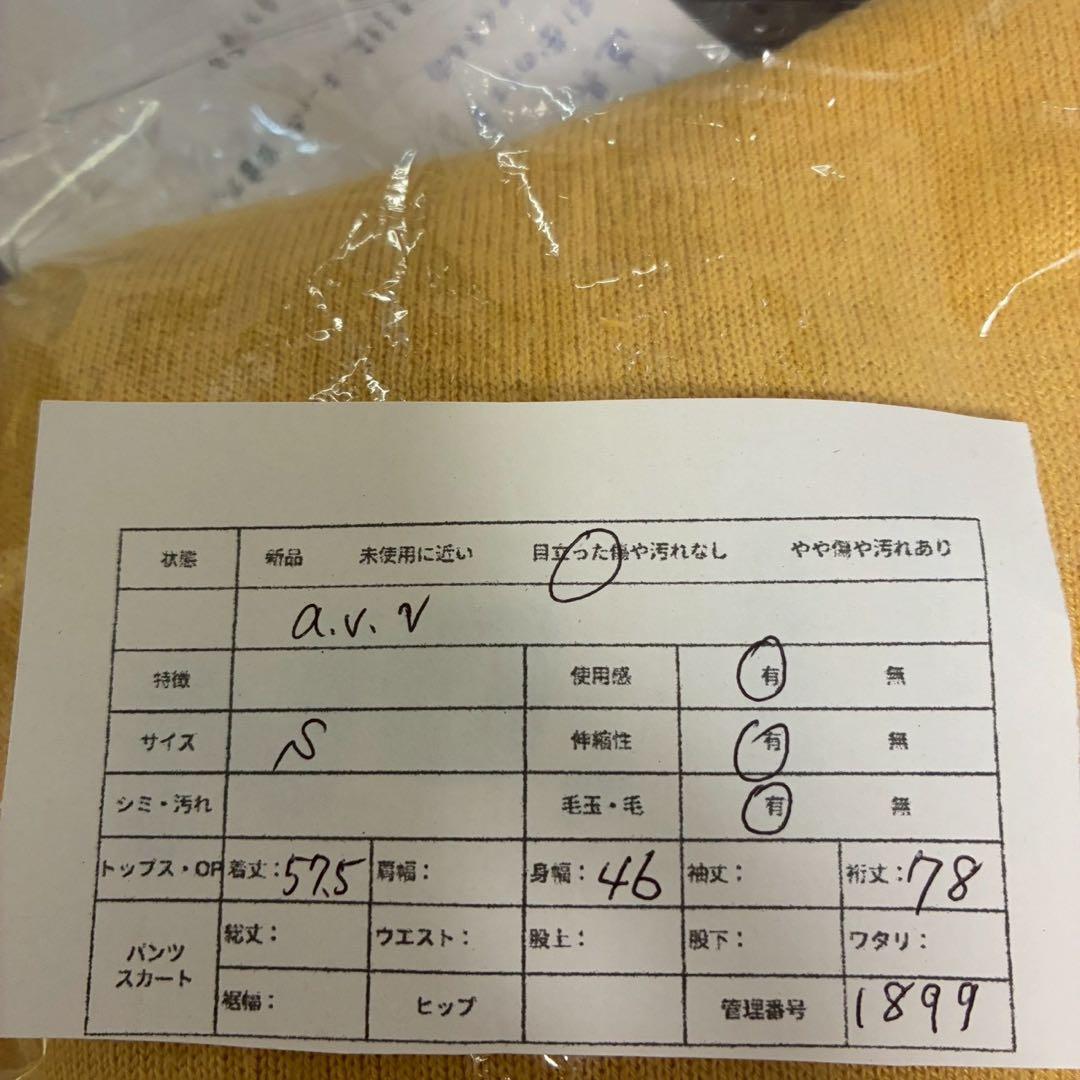 状態 新品 未使用に近い 目立った傷や汚れなし やや傷や汚れあり
a.v.v
特徴 使用感 有 無
サイズ S 伸縮性 有 無
シミ・汚れ 毛玉・毛 有 無
トップス・OP 着丈：57.5 肩幅： 身幅：46 袖丈： 裄丈：78
パンツ スカート 総丈： ウエスト： 股上： 股下： ワタリ：
裾幅： ヒップ 管理番号 1899